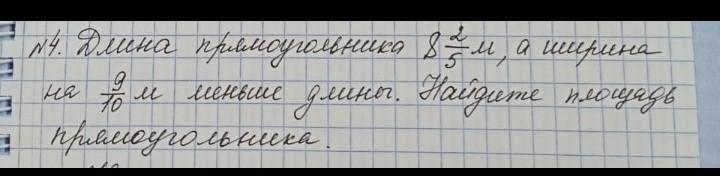 №4. Длина прямоугольника 8 2/5 м, а ширина
на 9/10 м меньше длины. Найдите площадь
прямоугольника.